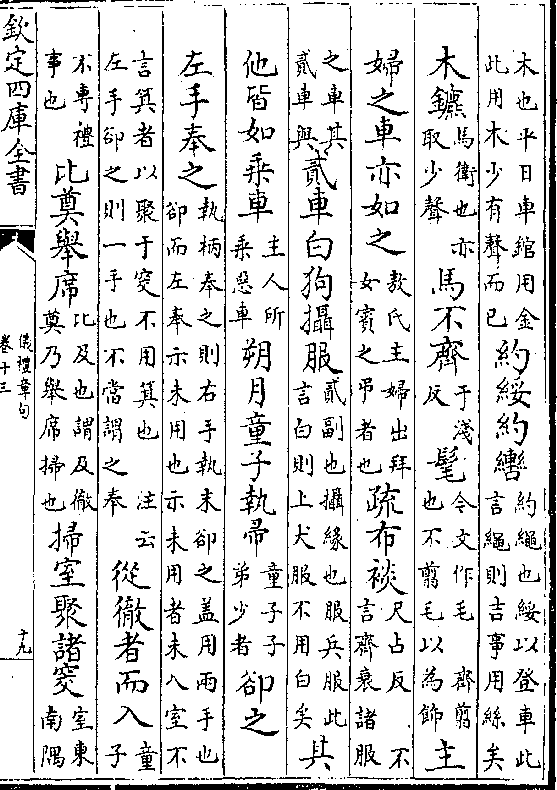 木也平日車錧用金
此用木少有聲而已
約綏約轡
約繩也綏以登車此
言繩則吉事用絲矣
木鑣
馬銜也亦
取少聲
馬不齊
于淺
反
髦
令文作毛 齊翦
也不翦毛以為飾
主
婦之車亦如之
敖氏主婦出拜
女賓之弔者也
疏布裧
尺占反 不
言齊衰諸服
之車其
貳車與
貳車白狗攝服
貳副也攝緣也服兵服此
言白則上犬服不用白矣
其
他皆如乘車
主人所
乘惡車
朔月童子執帚
童子子
弟少者
卻之
左手奉之
執柄奉之則右手執末卻之盖用兩手也
卻而左奉示未用也示未用者未入室不
言箕者以聚于窔不用箕也 注云
左手卻之則一手也不當謂之奉
從徹者而入
童
子
不專禮
事也
比奠舉席
比及也謂及徹
奠乃舉席掃也
掃室聚諸窔
室東
南隅
欽定四庫全書
儀禮章句
卷十三
十九